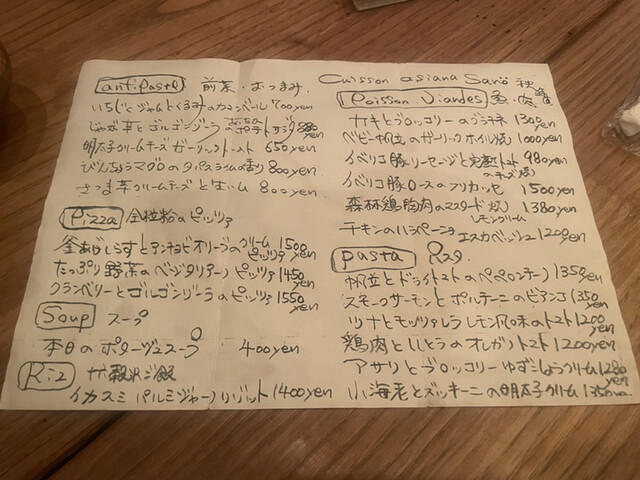 antipasto 前菜・おつまみ
いちじくジャムとくるみのカマンベール 700yen
じゃが芋とゴルゴンゾーラの ポテトサラダ 880yen
明太子クリームチーズガーリックトースト 650yen
びんちょうマグロのタパス ライムの香り 800yen
さつま芋クリームチーズと生ハム 800yen
Pizza 全粒粉のピッツァ
釜あげしらすとアンチョビオリーブのクリームピッツァ 1500yen
たっぷり野菜のベジタリアーノピッツァ 1450yen
クランベリーとゴルゴンゾーラのピッツァ 1550yen
Soup スープ
本日のポタージュスープ 400yen
Riz 雑穀米ご飯
イカスミ パルミジャーノリゾット 1400yen
Cuisson asiana Sano 秋
Poisson Viandes 魚・肉
カキとブロッコリーのグラチネ 1300yen
ベビー帆立のガーリックオイル焼 1000yen
イベリコ豚ソーセージと完熟トマトのチーズ焼 980yen
イベリコ豚ロースのフリカッセ 1500yen
森林鶏胸肉のマスタード焼 レモンクリーム 1380yen
チキンのハラペーニョ エスカベッシュ 1200yen
pasta パスタ
帆立とドライトマトのペペロンチーノ 1350yen
スモークサーモンとポルチーニのビアンコ 1350yen
ツナとモッツァレラ レモン風味のトマト 1200yen
鶏肉としめじのオレガノトマト 1200yen
アサリとブロッコリー ゆずこしょうクリーム 1280yen
小海老とズッキーニの明太子クリーム 1350yen